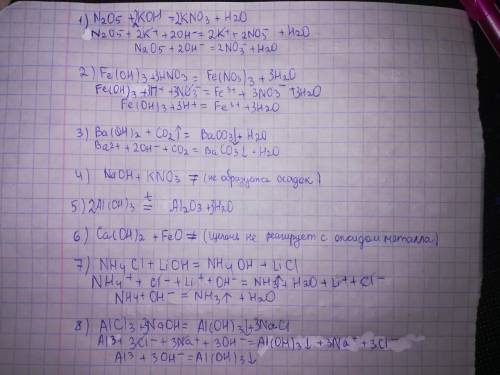 1) N2O5 + 2KOH = 2KNO3 + H2O
N2O5 + 2K⁺ + 2OH⁻ = 2K⁺ + 2NO3⁻ + H2O
N2O5 + 2OH⁻ = 2NO3⁻ + H2O
2) Fe(OH)3 + 3HNO3 = Fe(NO3)3 + 3H2O
Fe(OH)3 + 3H⁺ + 3NO3⁻ = Fe³⁺ + 3NO3⁻ + 3H2O
Fe(OH)3 + 3H⁺ = Fe³⁺ + 3H2O
3) Ba(OH)2 + CO2↑ = BaCO3↓ + H2O
Ba²⁺ + 2OH⁻ + CO2 = BaCO3↓ + H2O
4) NaOH + KNO3 ≠ (не образуется осадок)
5) 2Al(OH)3 =ᵗ Al2O3 + 3H2O
6) Ca(OH)2 + FeO ≠ (щелочь не реагирует с оксидом металла)
7) NH4Cl + LiOH = NH4OH + LiCl
NH4⁺ + Cl⁻ + Li⁺ + OH⁻ = NH3↑ + H2O + Li⁺ + Cl⁻
NH4⁺ OH⁻ = NH3↑ + H2O
8) AlCl3 + 3NaOH = Al(OH)3↓ + 3NaCl
Al³⁺ + 3Cl⁻ + 3Na⁺ + 3OH⁻ = Al(OH)3↓ + 3Na⁺ + 3Cl⁻
Al³ + 3OH⁻ = Al(OH)3↓